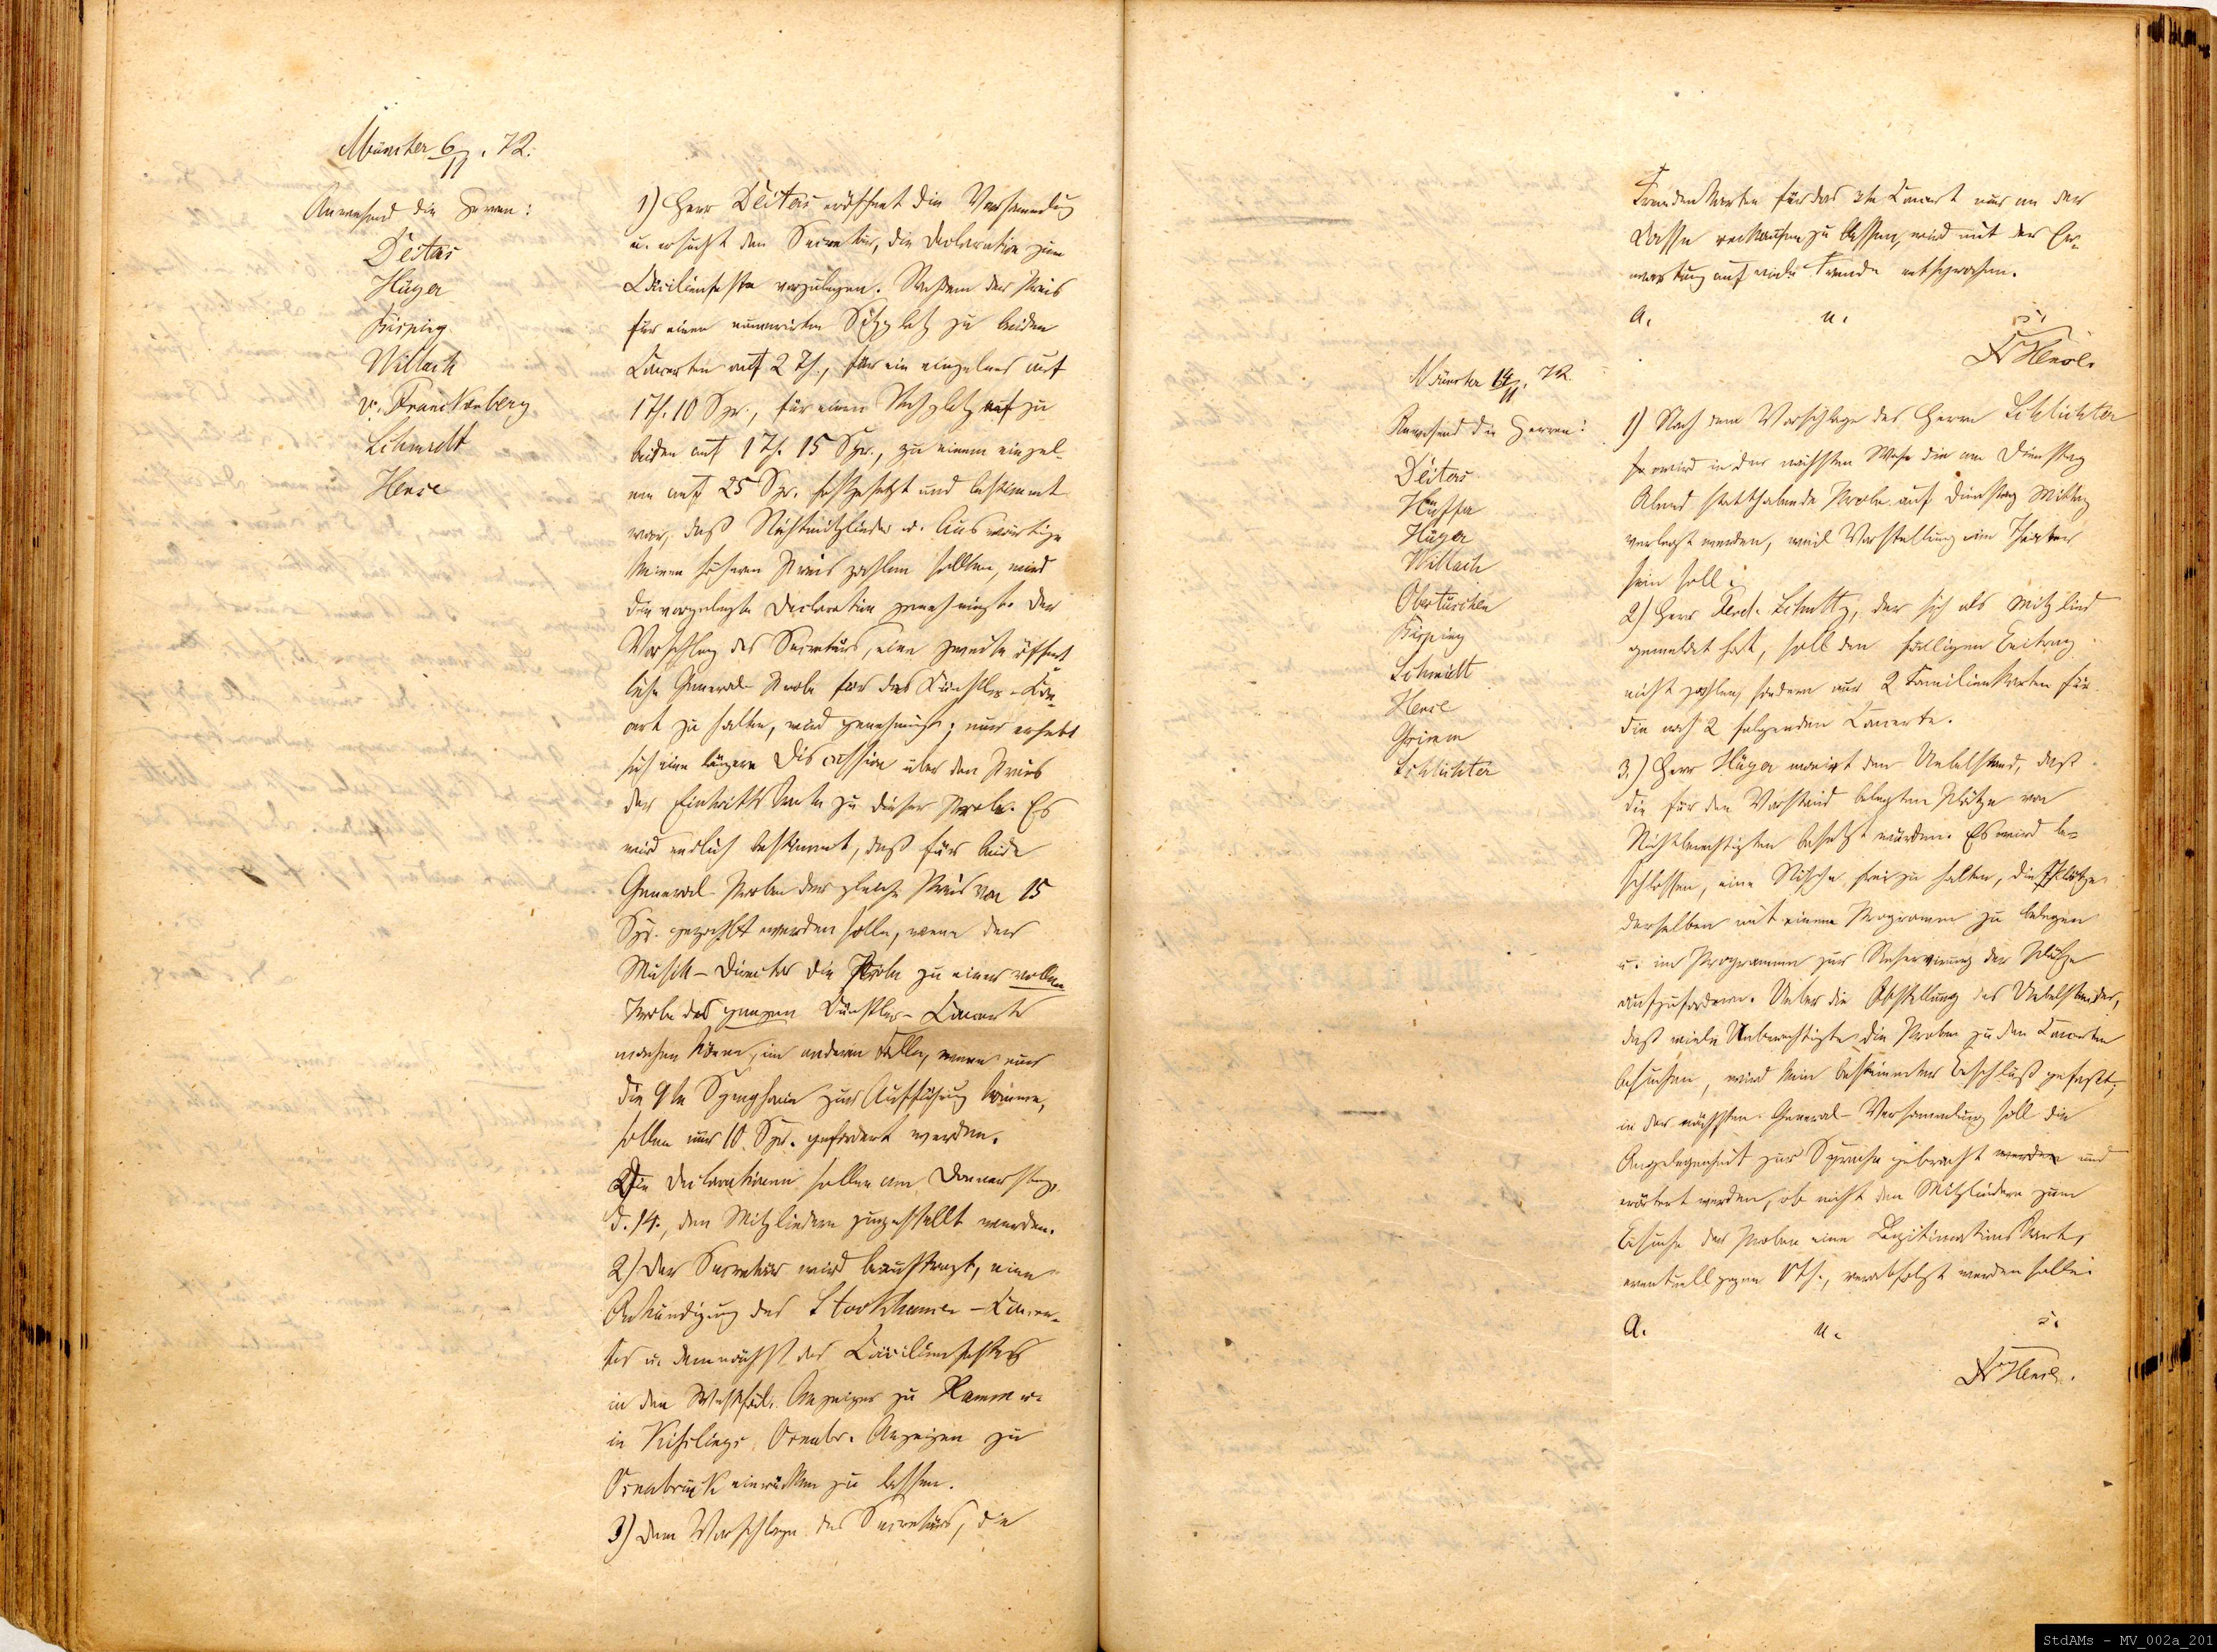 Münster 6/11. 72.
Anwesend die Herren:
Deiters
Hüger
Bisping
Willach
v. Franckenberg
Schmidt
Hense
1) Herr Deiters eröffnet die Versammlung
u. ersucht den Secretär, die Declaration zum
Cäcilienfeste vorzulegen. Nachdem der Preis
für einen numerirten Sitzplatz zu beiden
Concerten auf 2 Th., für ein einzelnes auf
1 Th. 10 Sgr., für einen Stehplatz auf zu
beiden auf 1 Th. 15 Sgr., zu einem einzel-
nen auf 25 Sgr. festgesetzt und bestimmt
war, daß Nichtmitglieder u. Auswärtige
keinen höhern Preis zahlen sollten, wird
die vorgelegte Declaration genehmigt. Der
Vorschlag des Secretärs, eine zweite öffent
liche General-Probe für das Künstler-Con-
cert zu halten, wird genehmigt; nur erhebt
sich eine längere Discussion über den Preis
der Eintrittskarte zu dieser Probe. Es
wird endlich bestimmt, daß für beide
General-Proben der gleiche Preis von 15
Sgr. gezahlt werden solle, wenn der
Musik-Director die Probe zu einer vollen
Probe des ganzen Künstler-Concerts
machen könne, im anderen Falle, wenn nur
die 9te Symphonie zur Aufführung komme,
sollen nur 10 Sgr. gefordert werden.
Die Declarationen sollen am Donnerstag,
d. 14., den Mitgliedern zugestellt werden.
2) Der Secretär wird beauftragt, eine
Ankündigung des Stockhausen-Concer-
tes u. demnächst des Cäcilienfestes
in den Westfäl. Anzeiger zu Hamm u.
in Kislings Osnabr. Anzeigen zu
Osnabrück einrücken zu lassen.
3) Dem Vorschlage des Secretärs, die
Fremdenkarten für das 2te Concert nur an der
Casse verkaufen zu lassen, wird mit der Er-
wartung auf viele Fremde entsprochen.
a. u. s.
Dr Hense.
Münster 14/11. 72.
Anwesend die Herren:
Deiters
Hüffer
Hüger
Willach
Obertüschen
Bisping
Schmidt
Hense
Grimm
Schlichter
1) Nach dem Vorschlage des Herrn Schlichter
wird in der nächsten Woche die am Dienstag
Abend statthabende Probe auf Dienstag Mittag
verlegt werden, weil Vorstellung im Theater
sein soll.
2) Herr Ferd. Schmitz, der sich als Mitglied
gemeldet hat, soll den fälligen Beitrag
nicht zahlen, sondern nur 2 Familienkarten für
die noch 2 folgenden Concerte.
3.) Herr Hüger monirt den Uebelstand, daß
die für den Vorstand belegten Plätze von
Nichtberechtigten besetzt würden. Es wird be-
schlossen, eine Nische frei zu halten, die Plätze
derselben mit einem Programm zu belegen
u. im Programm zur Reservirung der Plätze
aufzufordern. Ueber die Abstellung des Uebelstandes,
daß viele Unberechtigte die Proben zu den Concerten
besuchen, wird kein bestimmter Beschluß gefaßt;
in der nächsten General-Versammlung soll die
Angelegenheit zur Sprache gebracht werden und
erörtert werden, ob nicht den Mitgliedern zum
Besuche der Proben eine Legitimationskarte,
eventuell gegen Th., verabfolgt werden solle.
a. u. s.
Dr Hense.
StdAMs - MV_002a_201